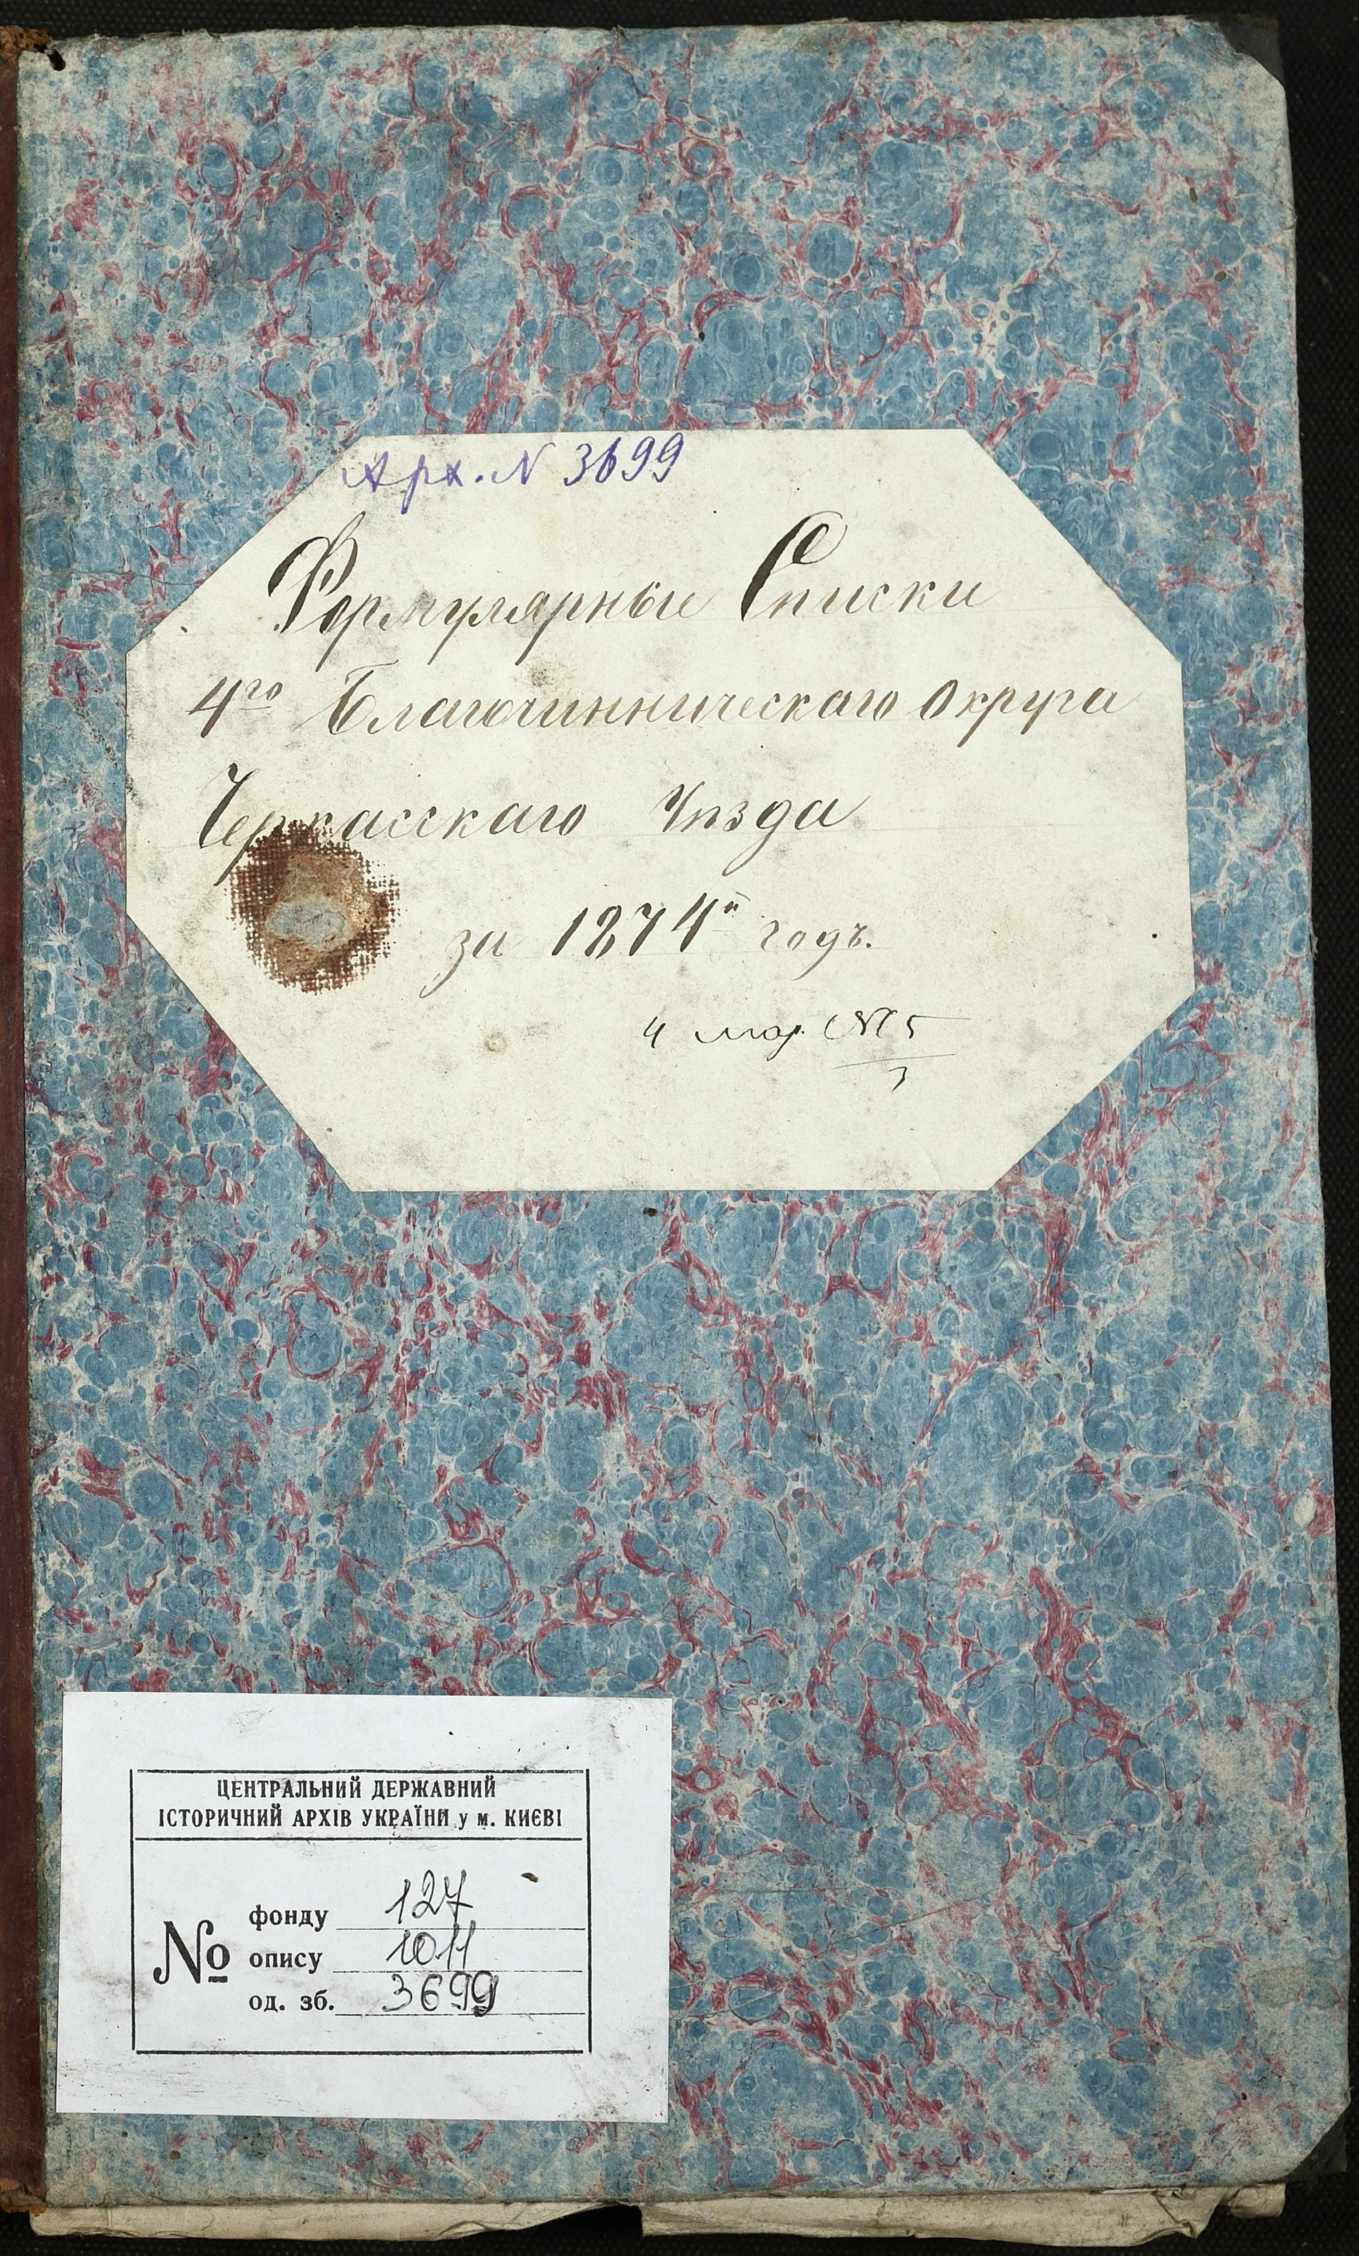 Арх. N 3699
Формулярные Списки
4го Благочинническаго Округа
Черкасскаго Уѣзда
за 1874й годъ.
ЦЕНТРАЛЬНИЙ ДЕРЖАВНИЙ
ІСТОРИЧНИЙ АРХІВ УКРАЇНИ у м. КИЄВІ
№
фонду 127
опису 1011
од. зб. 3699